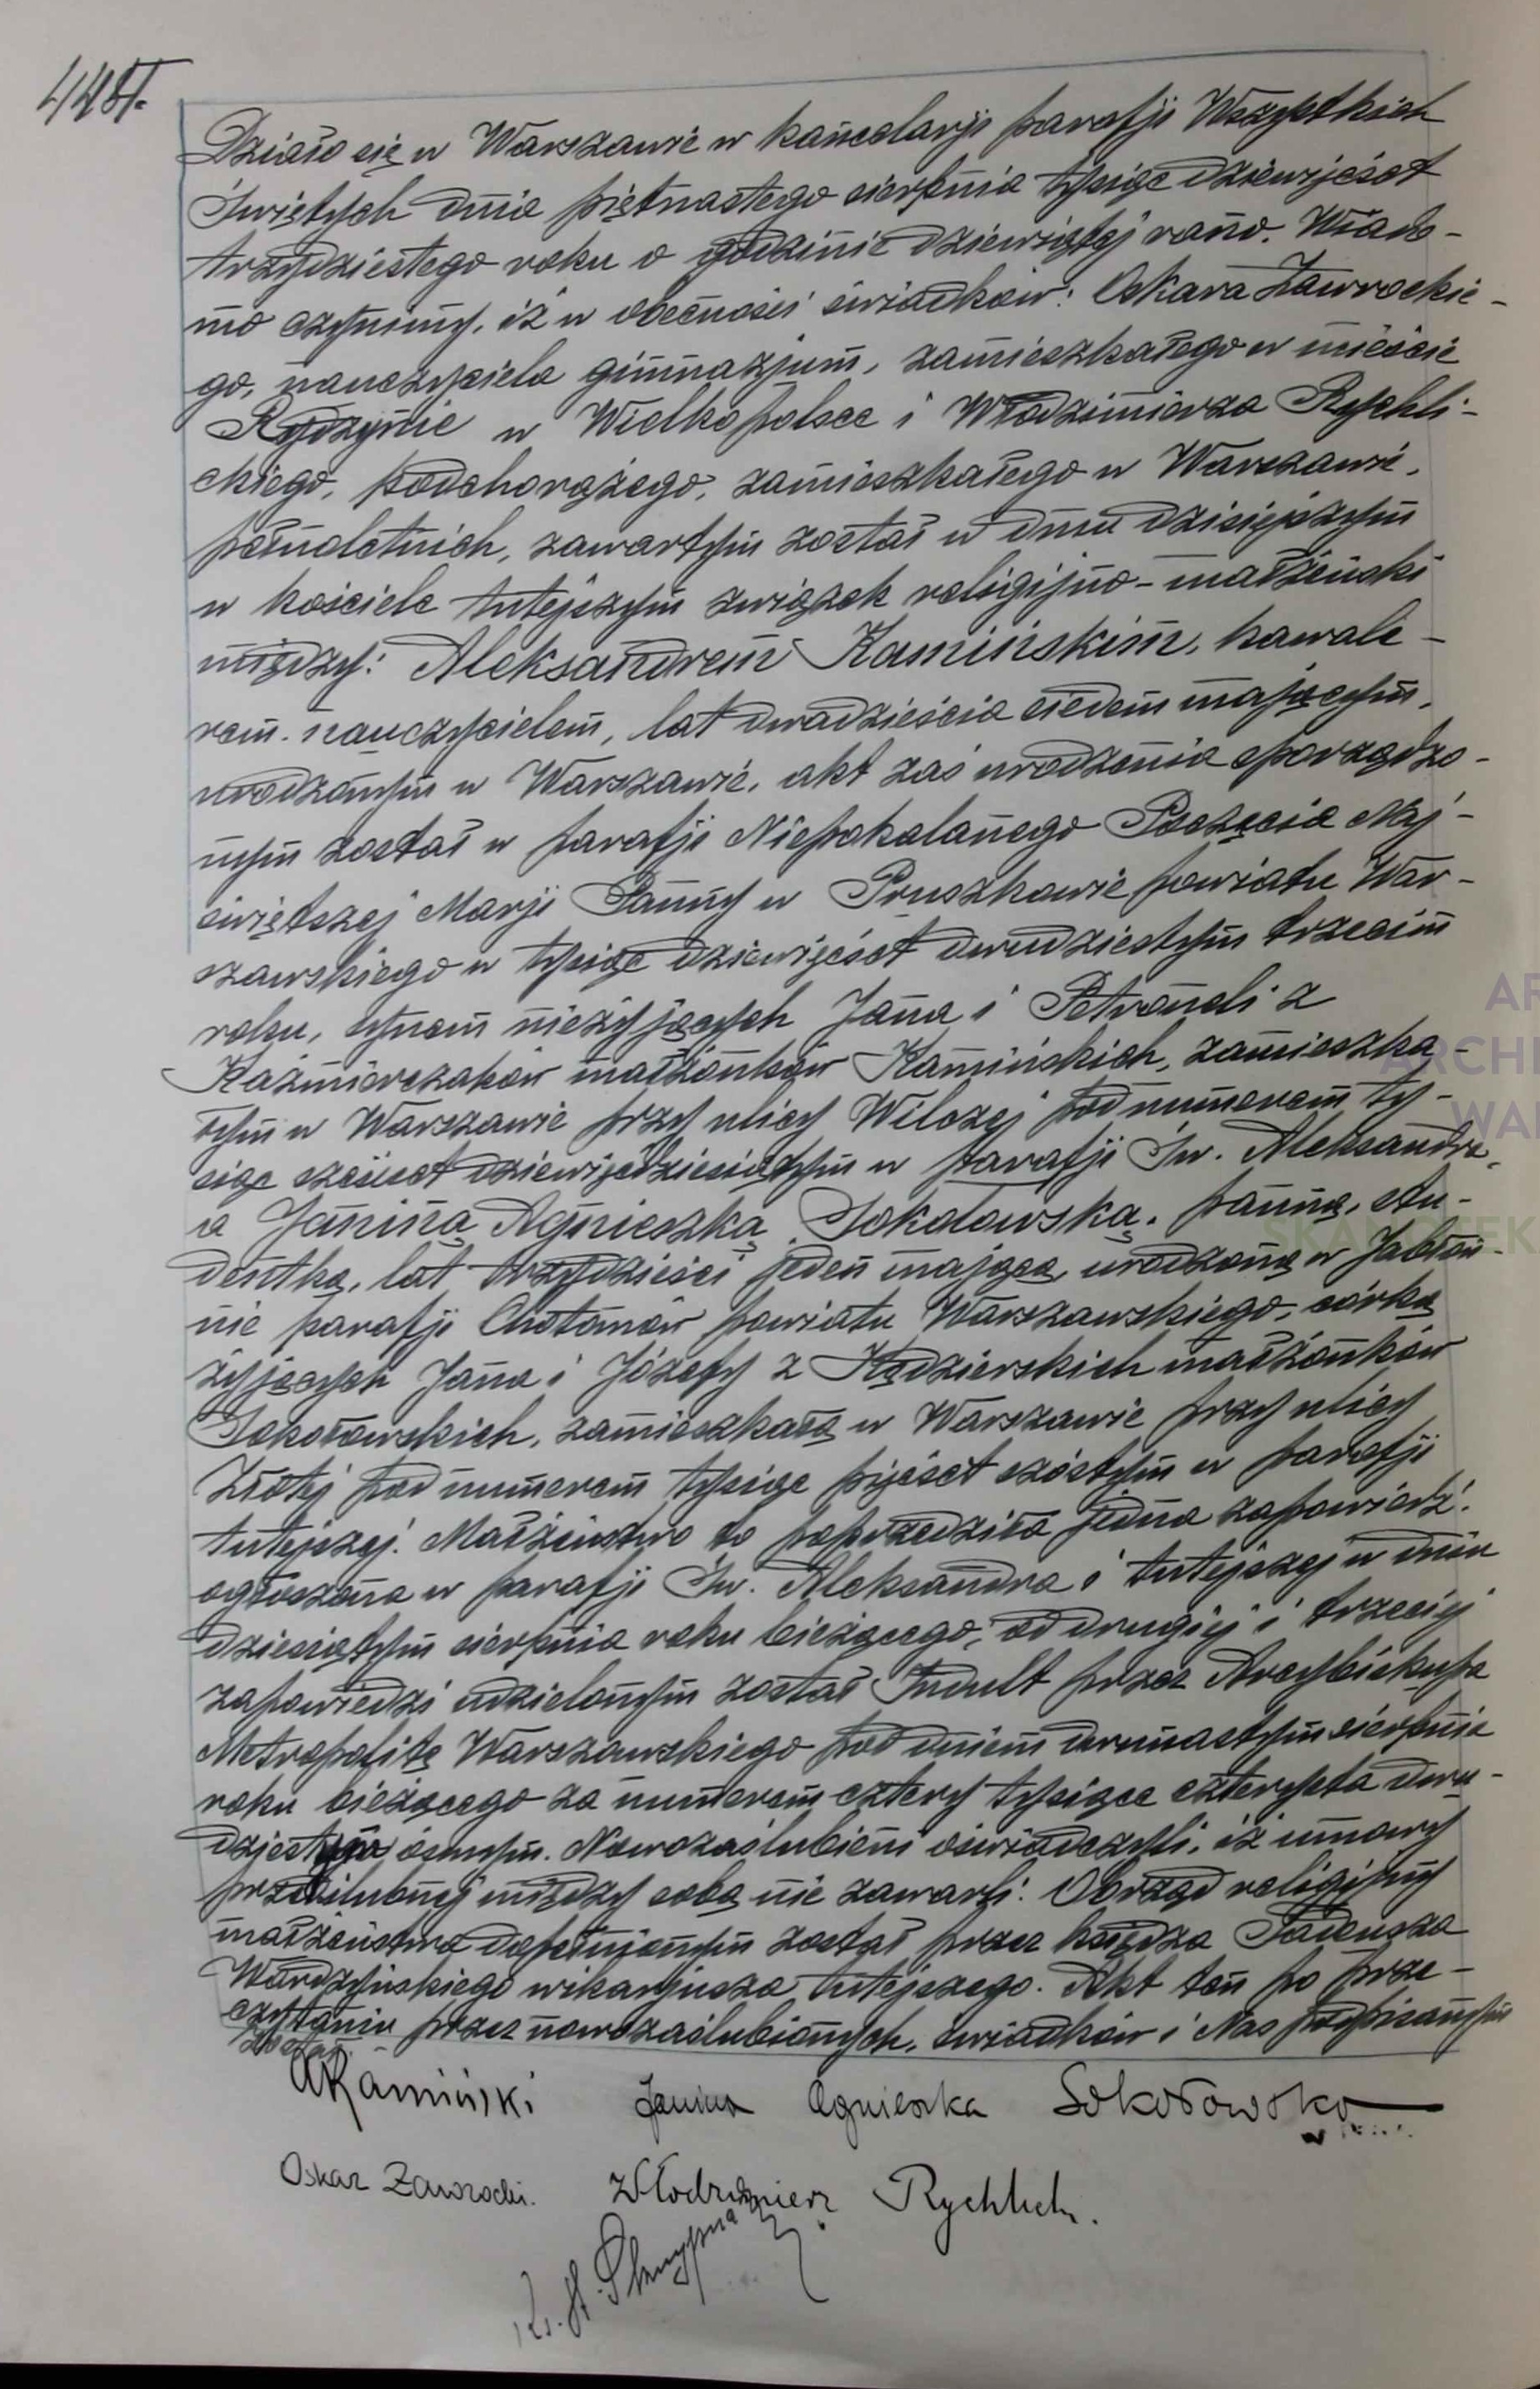 Działo się w Warszawie w kancelarji parafji Wszystkich
Świętych dnia piętnastego sierpnia tysiąc dziewięćset
trzydziestego roku o godzinie dziewiątej rano. Wiado-
mo czynimy, iż w obecności świadków: Oskara Żawrockie-
go, nauczyciela gimnazjum, zamieszkałego w mieście
Rydzynie w Wielkopolsce i Włodzimierza Rychli-
ckiego, podchorążego, zamieszkałego w Warszawie,
pełnoletnich, zawartym został w dniu dzisiejszym
w kościele tutejszym związek religijno-małżeński
między: Aleksandrem Kamińskim, kawale-
rem, nauczycielem, lat dwadzieścia siedem mającym,
urodzonym w Warszawie, akt zaś urodzenia sporządzo-
nym został w parafji Niepokalanego Poczęcia Naj-
świętszej Marji Panny w Pruszkowie powiatu War-
szawskiego w tysiąc dziewięćset dwudziestym trzecim
roku, synem nieżyjących Jana i Petroneli z
Kaźmierczaków małżonków Kamińskich, zamieszka-
łym w Warszawie przy ulicy Wilczej pod numerem ty-
siąc sześćset dziewięćdziesiątym w parafji Św. Aleksandra,
a Janiną Agnieszką Sokołowską, panną, stu-
dentką, lat trzydzieści jeden mającą, urodzoną w Jabłon-
nie parafji Chotomów powiatu Warszawskiego, córką
żyjących Jana i Józefy z Kędzierskich małżonków
Sokołowskich, zamieszkałą w Warszawie przy ulicy
Złotej pod numerem tysiąc pięćset szóstym w parafji
tutejszej. Małżeństwo to poprzedziła jedna zapowiedź
ogłoszona w parafji Św. Aleksandra i tutejszej w dniu
dziesiątym sierpnia roku bieżącego, od drugiej i trzeciej
zapowiedzi udzielonym został Indult przez Arcybiskupa
Metropolitę Warszawskiego pod dniem dwunastym sierpnia
roku bieżącego za numerem cztery tysiące czterysta dwu-
dziestym ósmym. Nowozaślubieni oświadczyli, iż umowy
przedślubnej między sobą nie zawarli. Obrząd religijny
małżeństwa dopełnionym został przez księdza Tadeusza
Wardzyńskiego wikarjusza tutejszego. Akt ten po prze-
czytaniu przez nowozaślubionych, świadków i Nas podpisanym
został.
AKamiński Janina Agnieszka Sokołowska
Oskar Żawrocki. Włodzimierz Rychlicki.
SKANOTEK